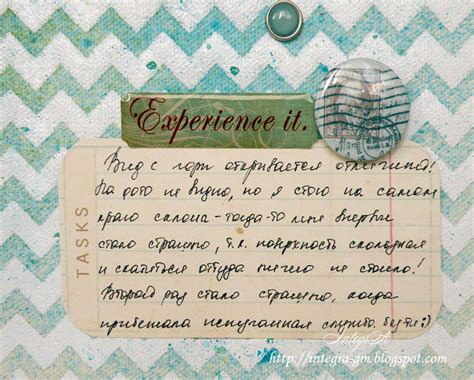 Experience it.
TASKS
Вид с горы открывается отличный!
На фото не видно, но я стою на самом
краю склона - тогда-то мне впервые
стало страшно, т.к. поверхность скользкая
и скатиться оттуда ничего не стоило!
Второй раз стало страшно, когда
прибежала испуганная служба
http://integra-gm.blogspot.com